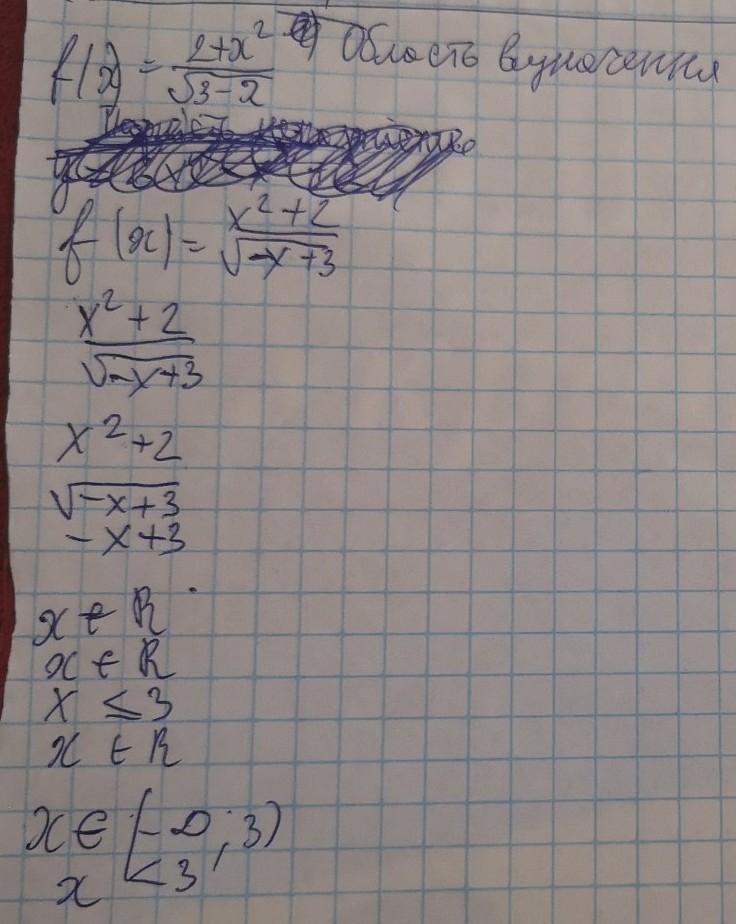 f(x) = (2+x²)/(√3-x) Область визначення
f(x) = (x²+2)/(√-x+3)
(x²+2)/(√-x+3)
x²+2
√-x+3
-x+3
x ∈ R
x ∈ R
x ≤ 3
x ∈ R
x ∈ (-∞; 3)
x < 3